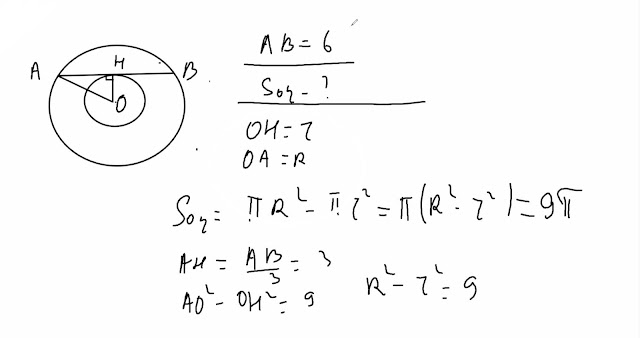 A H B
O
AB = 6
Sor - ?
OH = r
OA = R
Sor = πR² - πr² = π(R² - r²) = 9π
AH = AB/3 = 3
AO² - OH² = 9
R² - r² = 9